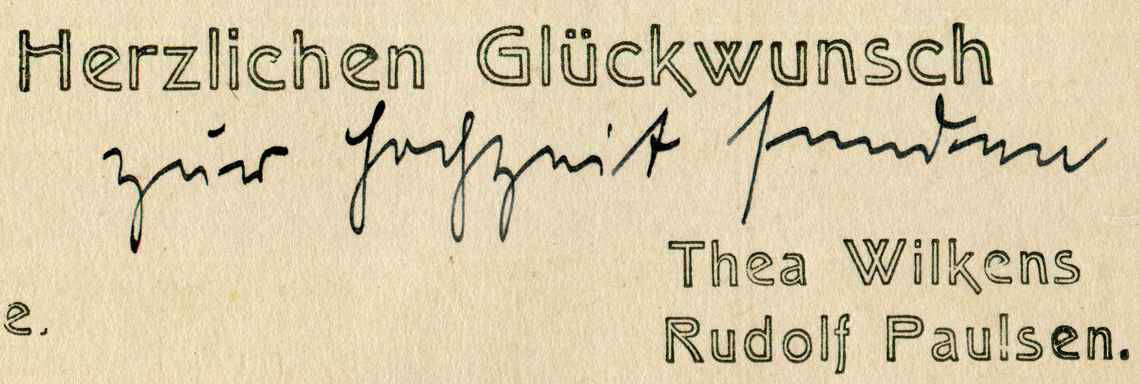 Herzlichen Glückwunsch
zur Hochzeit senden
Thea Wilkens
e.
Rudolf Paulsen.